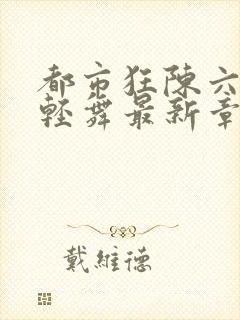 都市狂陈六
轻舞最新章
戴維德